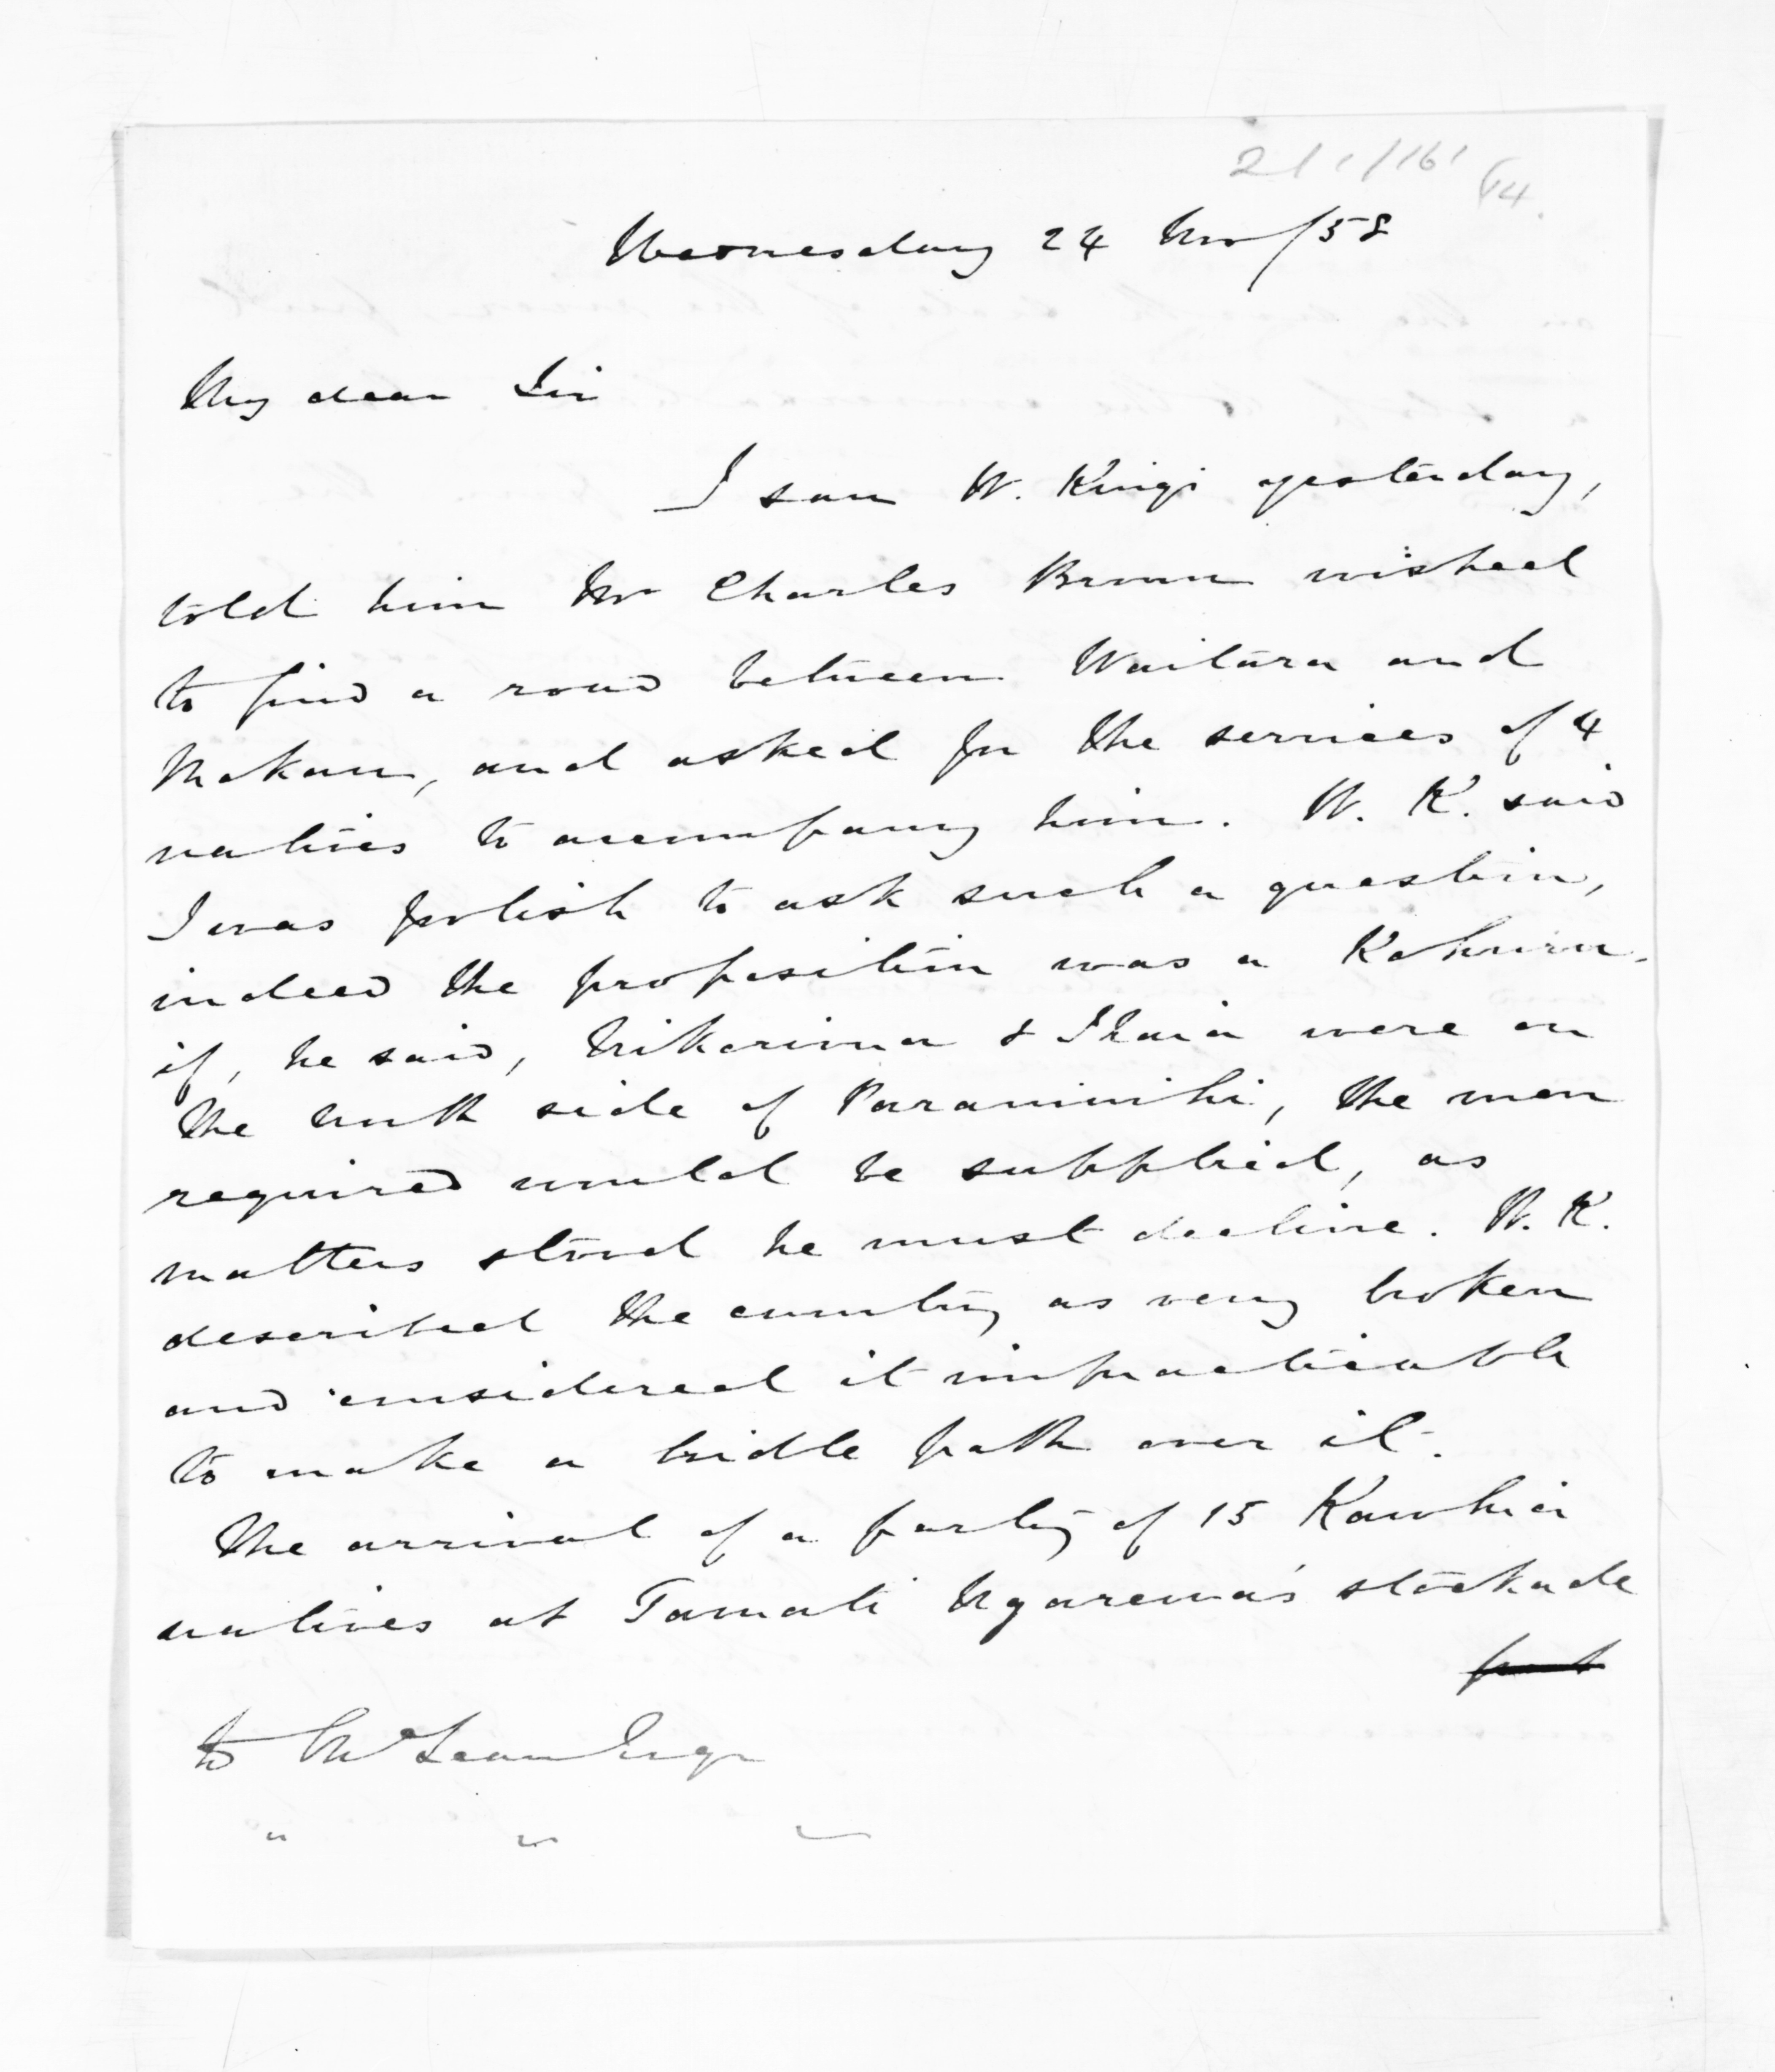 21/1/161 (14.
Wednesday 24 Nov/58
My dear Sir
I saw W. Kingi yesterday,
told him Mr Charles Brown wished
to find a road between Waitara and
Mokau, and asked for the services of 4
natives to accompany him. W. K. said
I was foolish to ask such a question,
indeed the proposition was a Kohuru.
if, he said, Nikorima & Ihaia were on
the north side of Paraninihi, the men
required would be supplied, as
matters stood he must decline. W. K.
described the country as very broken
and considered it impracticable
to make a bridle path over it.
The arrival of a party of 15 Kawhia
natives at Tamati Ngarewa's stockade
to McLean Esqr
" " "